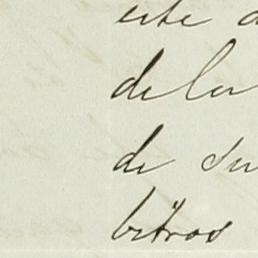 este
de
de su
bitros